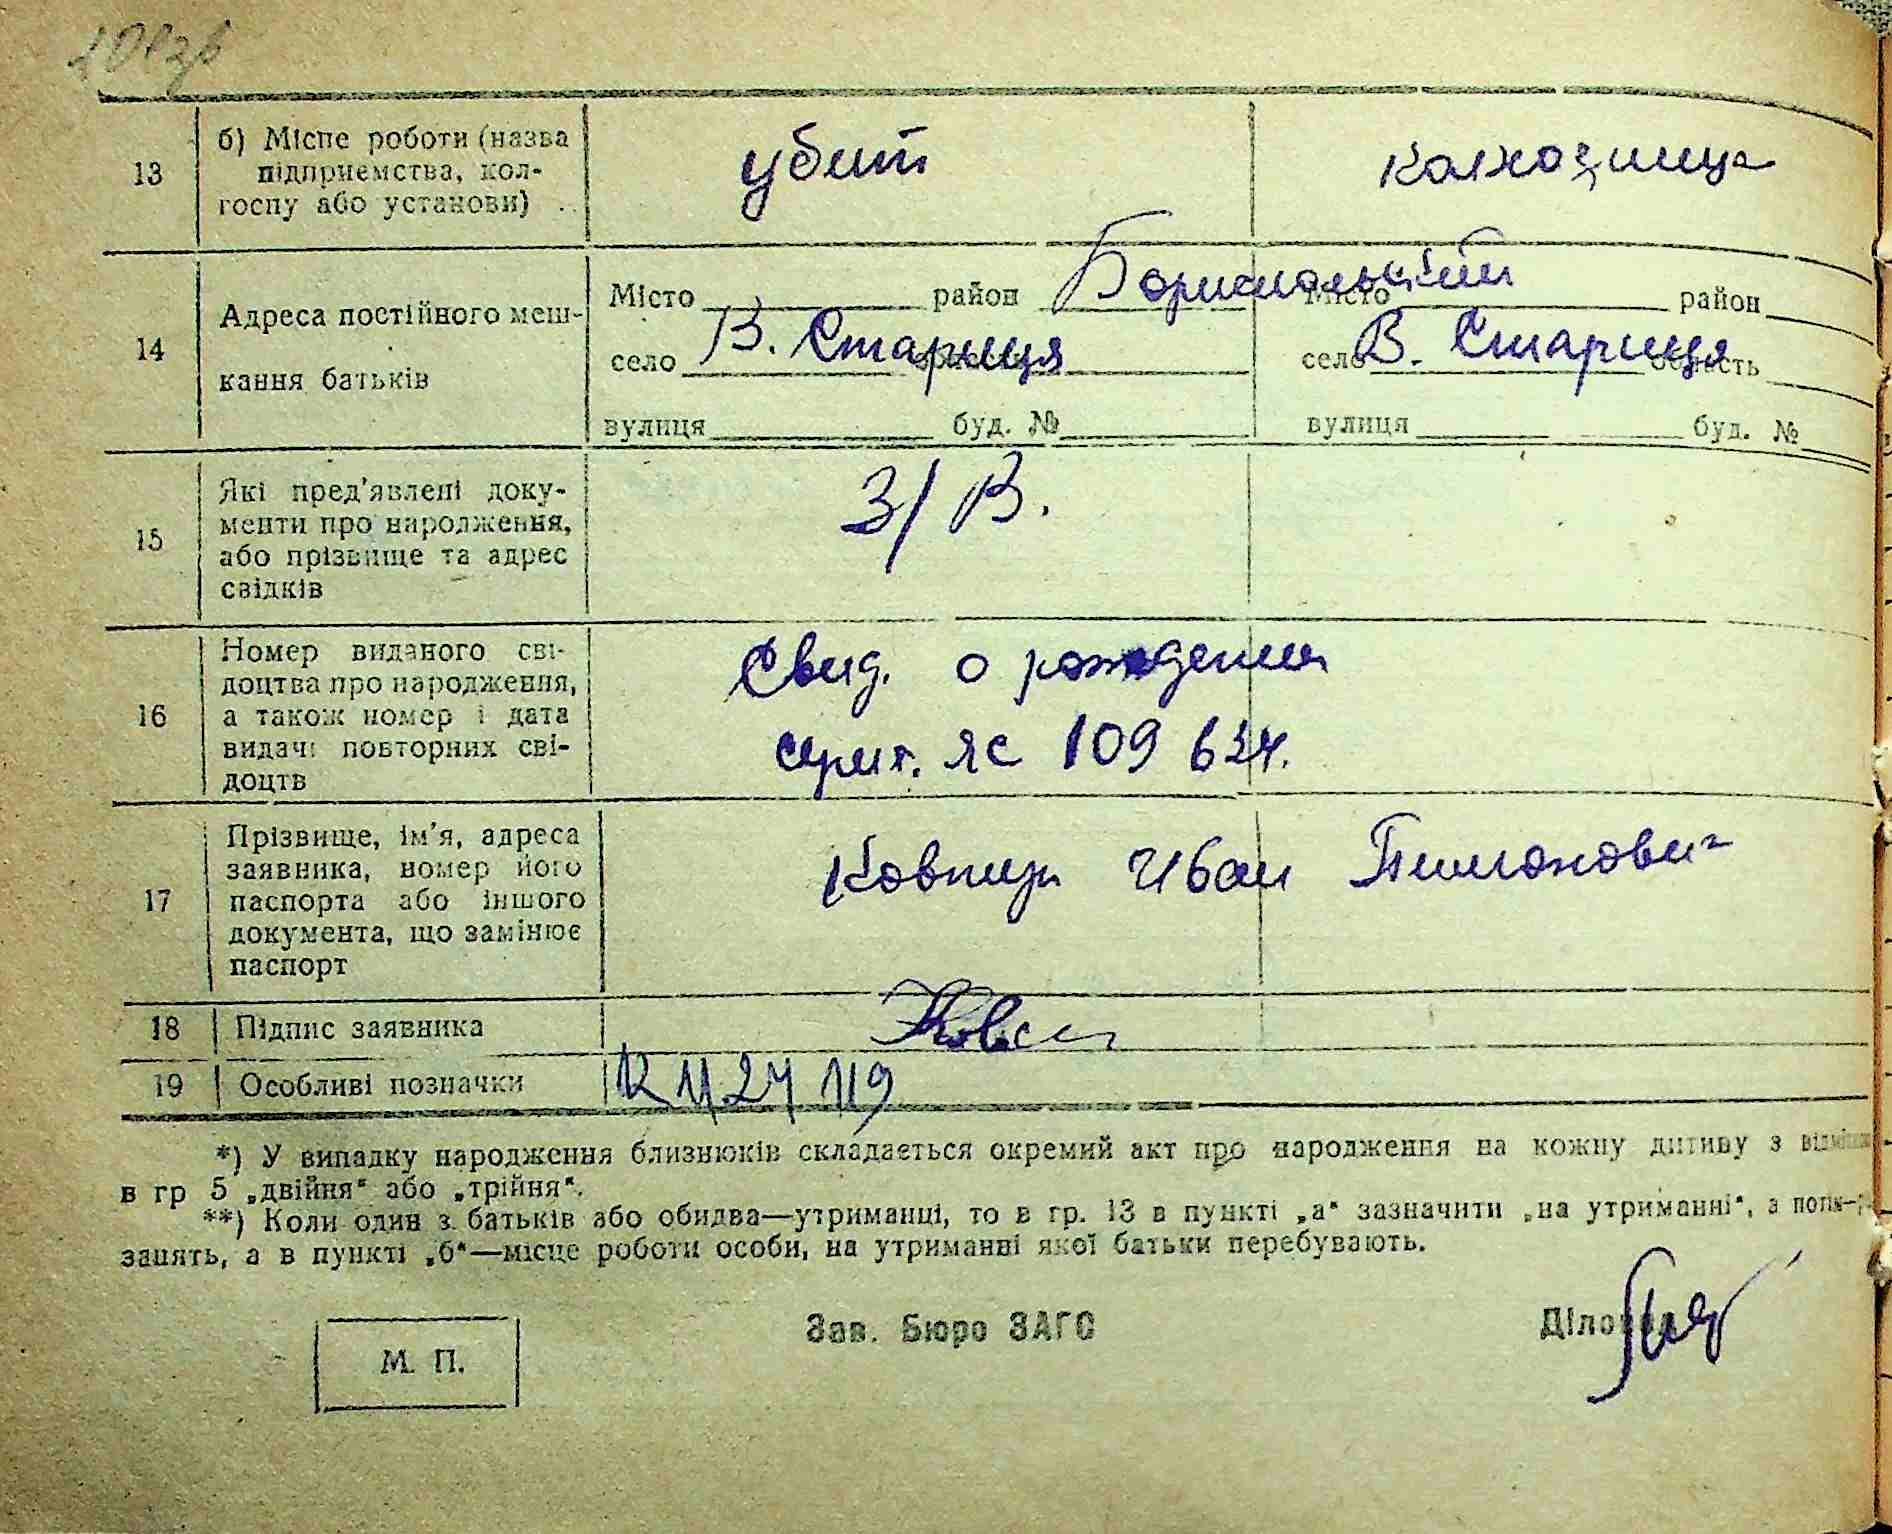 13
б) Місце роботи (назва
підприємства, кол-
госпу або установи)
убит
колхозница
14
Адреса постійного меш-
кання батьків
Місто район Бориспольский Місто район
село В. Стариця область село В. Стариця область
вулиця буд. № вулиця буд. №
15
Які пред'явлені доку-
менти про народження,
або прізвище та адрес
свідків
З/В.
16
Номер виданого сві-
доцтва про народження,
а також номер і дата
видачі повторних сві-
доцтв
Свид. о рождении
серия. ЯС 109 624.
17
Прізвище, ім'я, адреса
заявника, номер його
паспорта або іншого
документа, що замінює
паспорт
Иван
18 Підпис заявника
19 Особливі позначки
*) У випадку народження близнюків складається окремий акт про народження на кожну дитину з
в гр 5 „двійня" або „трійня".
**) Коли один з батьків або обидва—утриманці, то в гр. 13 в пункті „а" зазначити „на утриманні", з
занять, а в пункті „б"—місце роботи особи, на утриманні якої батьки перебувають.
М. П.
Зав. Бюро ЗАГС